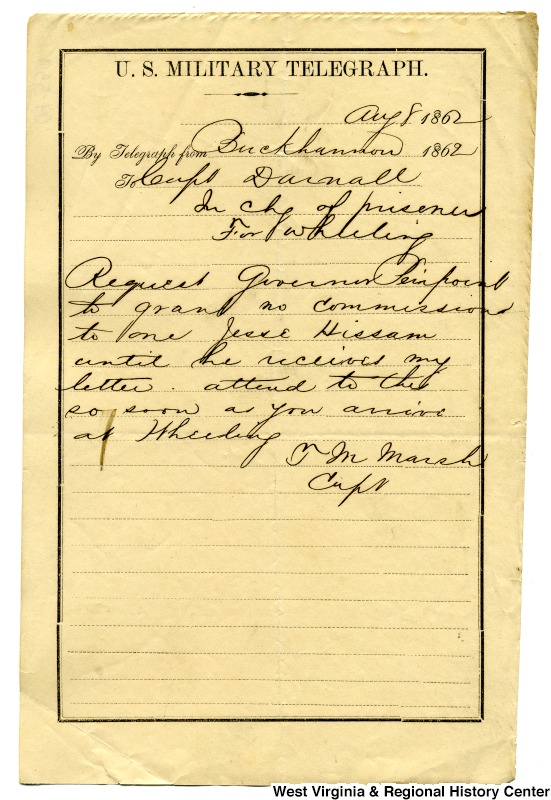 U. S. MILITARY TELEGRAPH.
Aug 8 1862
By Telegraph from Buckhannon 1862
To Capt Darnall
In chg of prisoners
For Wheeling
Request Governor Peirpoint
to grant no commissions
to one Jesse Hissam
until he receives my
letter. attend to this
so soon as you arrive
at Wheeling
T M Marsh
Capt
West Virginia & Regional History Center